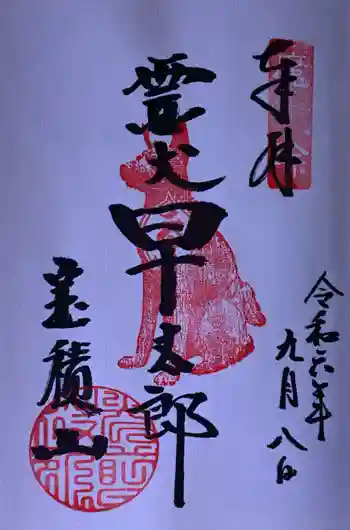 奉拝
令和六年
九月八日
霊犬早太郎
宝積山